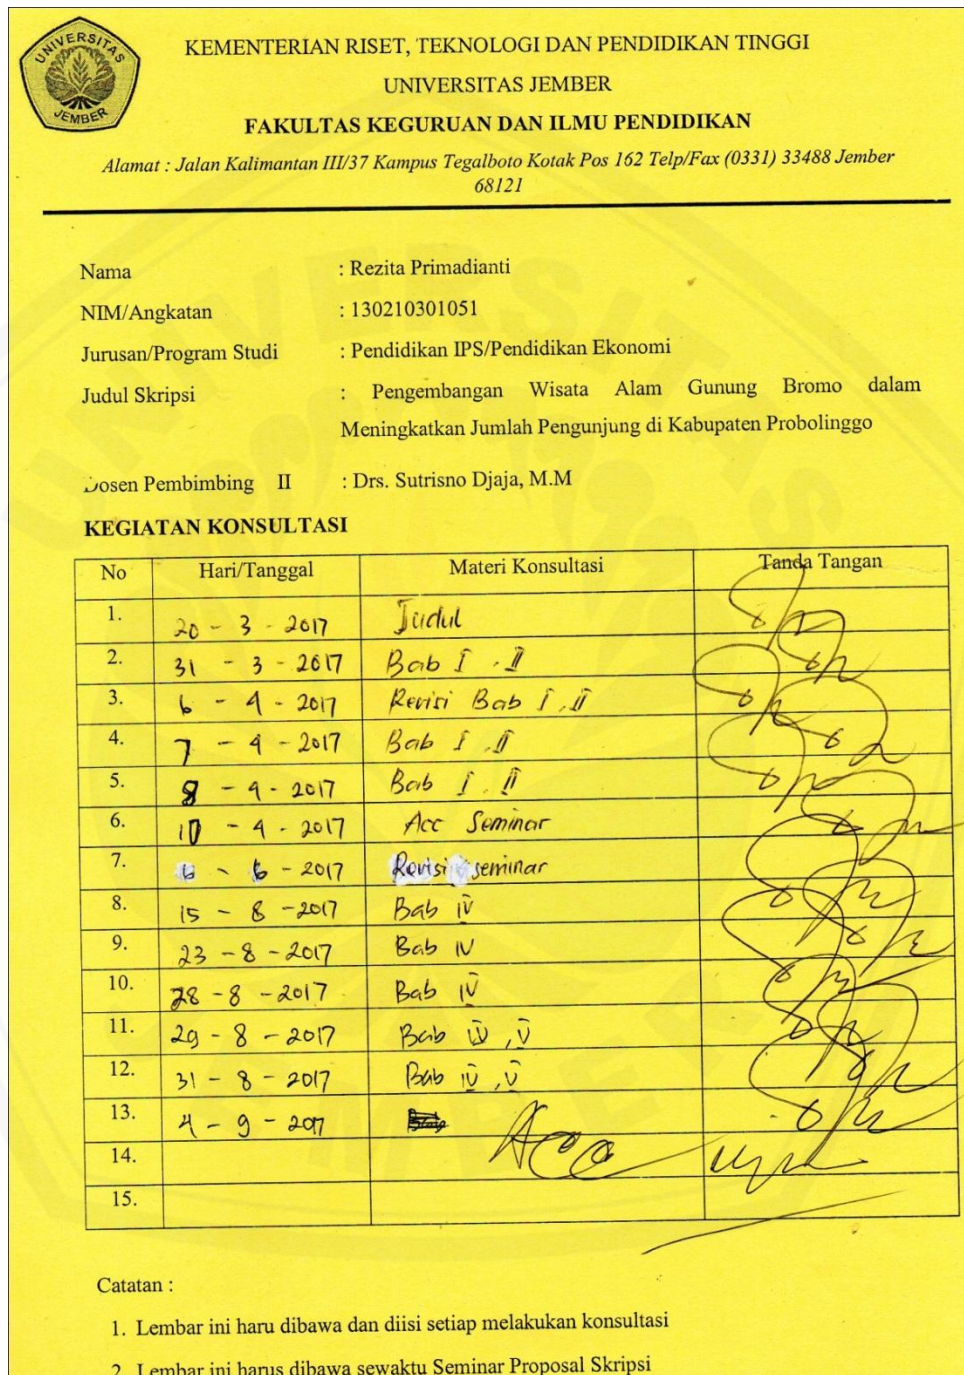 UNIVERSITAS
JEMBER
KEMENTERIAN RISET, TEKNOLOGI DAN PENDIDIKAN TINGGI
UNIVERSITAS JEMBER
FAKULTAS KEGURUAN DAN ILMU PENDIDIKAN
Alamat : Jalan Kalimantan III/37 Kampus Tegalboto Kotak Pos 162 Telp/Fax (0331) 33488 Jember
68121
Nama : Rezita Primadianti
NIM/Angkatan : 130210301051
Jurusan/Program Studi : Pendidikan IPS/Pendidikan Ekonomi
Judul Skripsi : Pengembangan Wisata Alam Gunung Bromo dalam
Meningkatkan Jumlah Pengunjung di Kabupaten Probolinggo
Dosen Pembimbing II : Drs. Sutrisno Djaja, M.M
KEGIATAN KONSULTASI
No Hari/Tanggal Materi Konsultasi Tanda Tangan
1. 20 - 3 - 2017 Judul
2. 31 - 3 - 2017 Bab I . II
3. 6 - 4 - 2017 Revisi Bab I . II
4. 7 - 4 - 2017 Bab I . II
5. 8 - 4 - 2017 Bab I . II
6. 10 - 4 - 2017 Acc Seminar
7. 6 - 6 - 2017 Revisi seminar
8. 15 - 8 - 2017 Bab IV
9. 23 - 8 - 2017 Bab IV
10. 28 - 8 - 2017 Bab IV
11. 29 - 8 - 2017 Bab IV , V
12. 31 - 8 - 2017 Bab IV , V
13. 4 - 9 - 2017
14. ACC
15.
Catatan :
1. Lembar ini haru dibawa dan diisi setiap melakukan konsultasi
2. Lembar ini harus dibawa sewaktu Seminar Proposal Skripsi